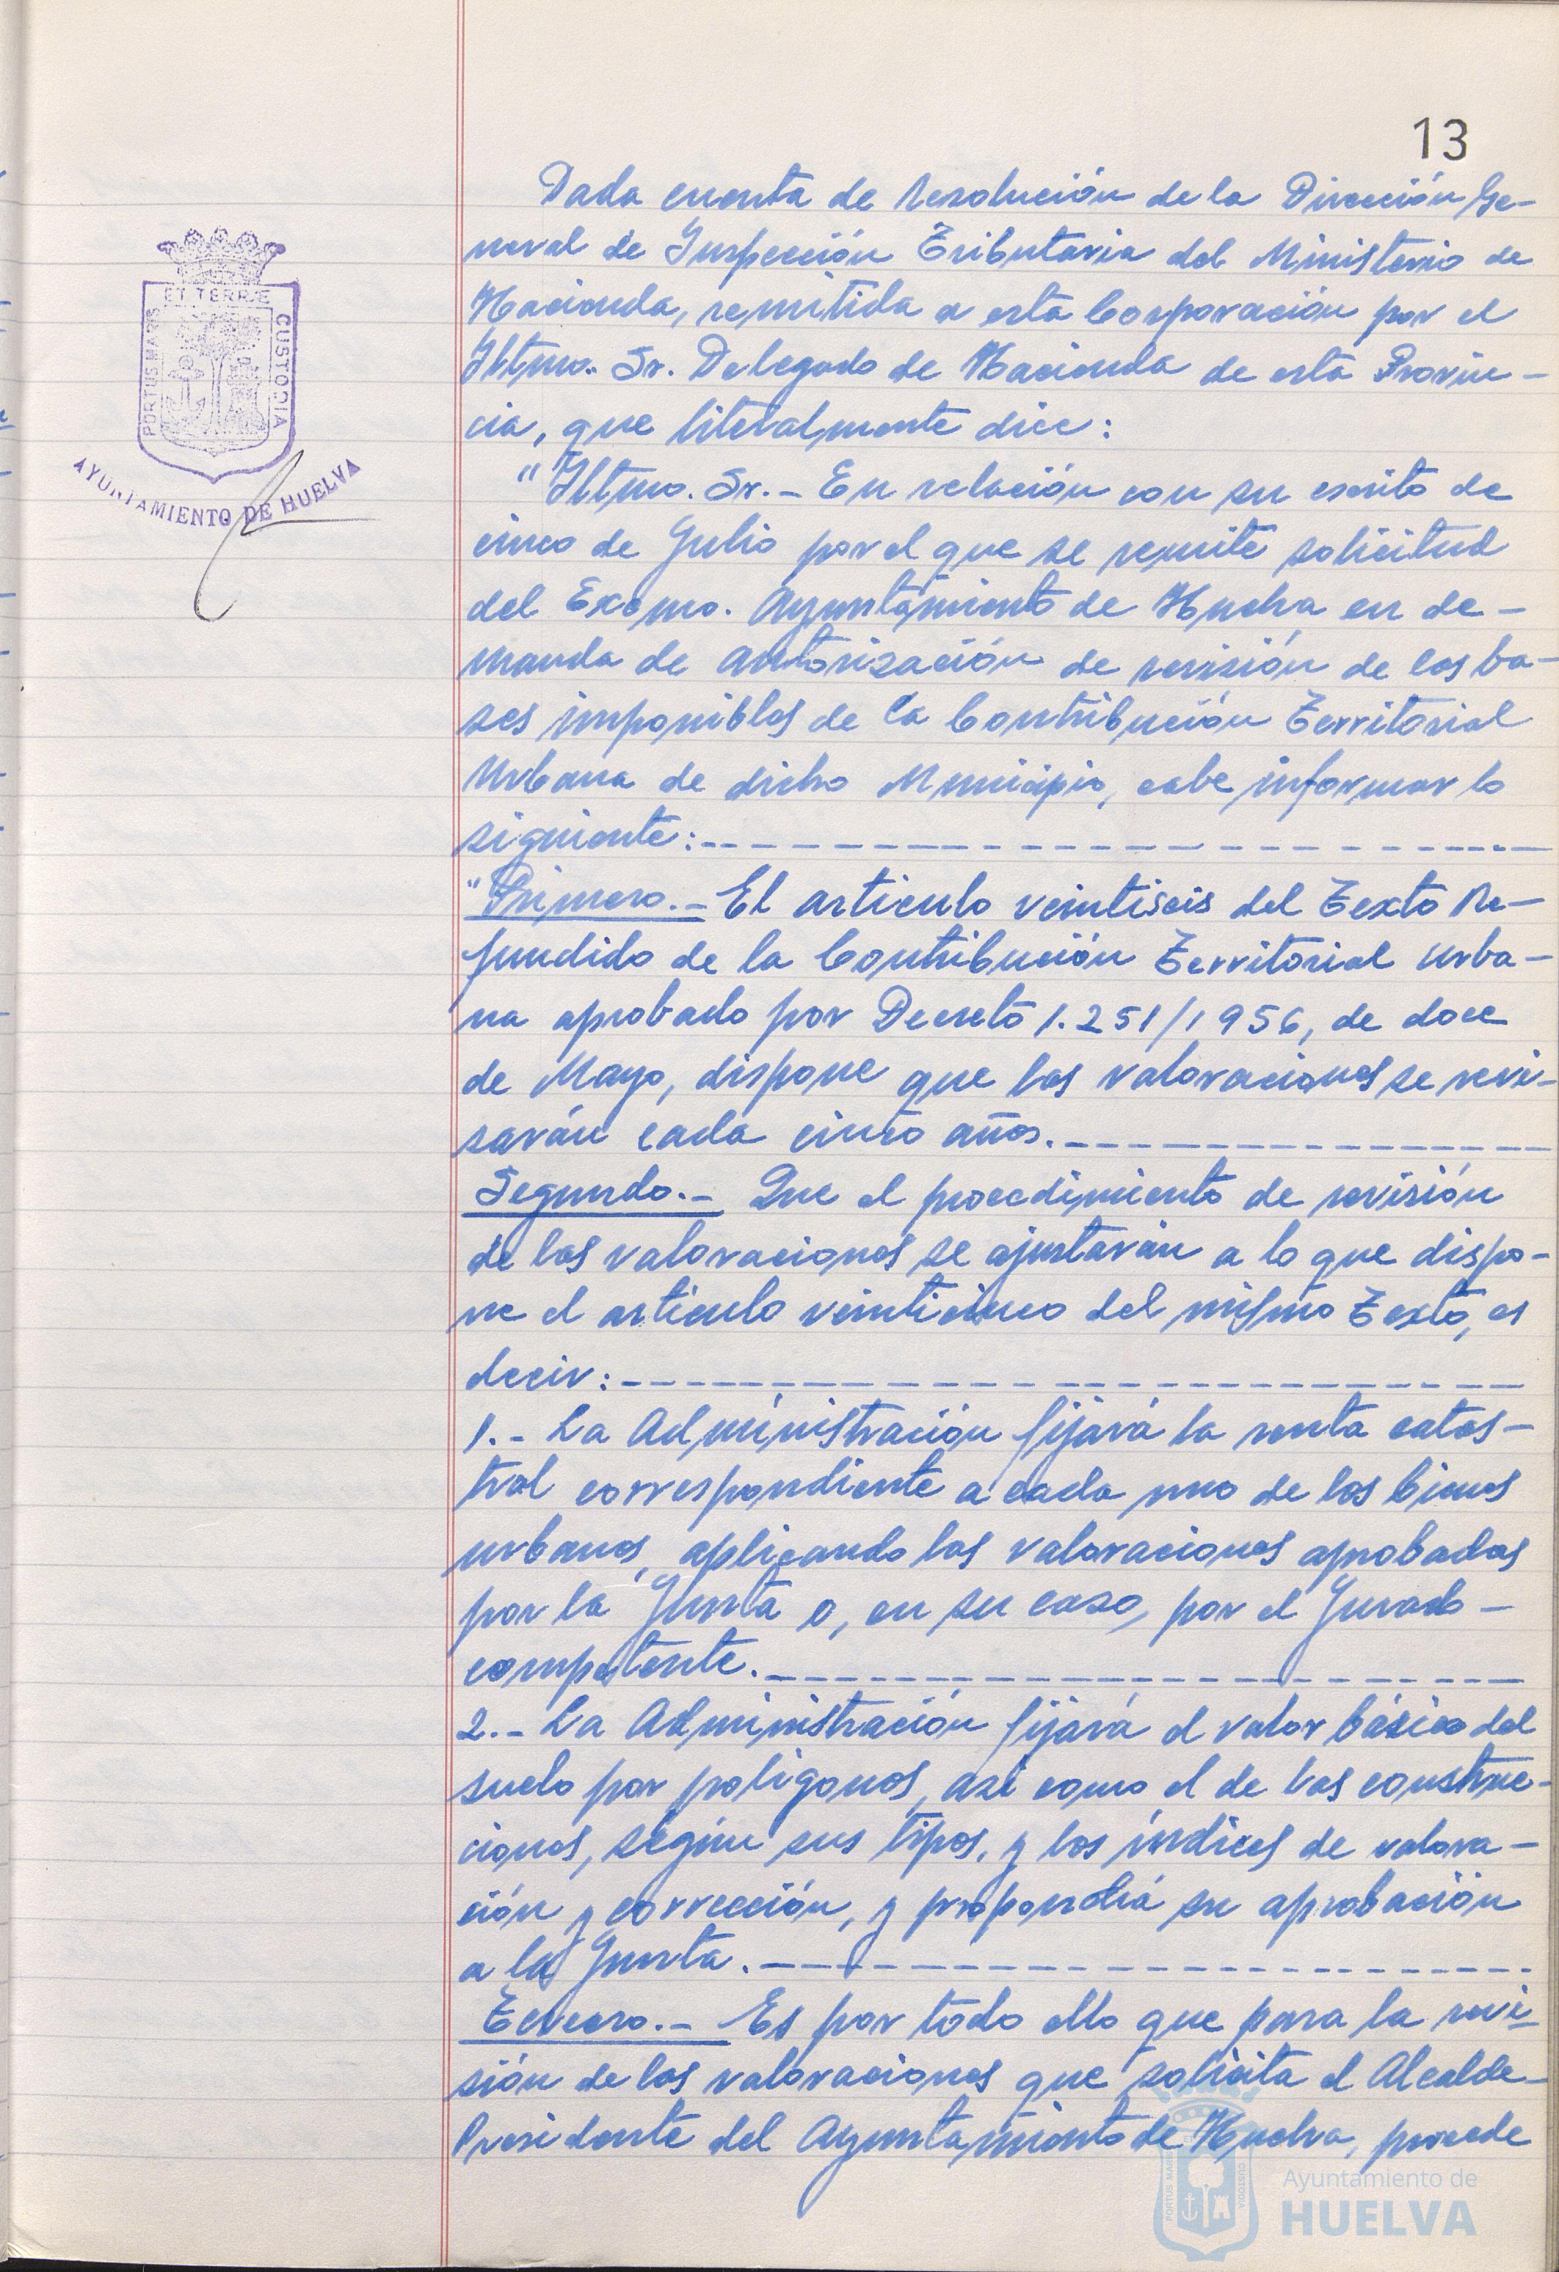 13
Dada cuenta de resolución de la Dirección Ge-
neral de Inspección Tributaria del Ministerio de
Hacienda, remitida a esta Corporación por el
Iltmo. Sr. Delegado de Hacienda de esta Provin-
cia, que literalmente dice:
"Iltmo. Sr.- En relación con su escrito de
cinco de Julio por el que se remite solicitud
del Excmo. Ayuntamiento de Huelva en de-
manda de autorización de revisión de las ba-
ses imponibles de la Contribución Territorial
Urbana de dicho Municipio, cabe informar lo
siguiente:
"Primero.- El artículo veintiseis del Texto Re-
fundido de la Contribución Territorial Urba-
na aprobado por Decreto 1.251/1956, de doce
de Mayo, dispone que las valoraciones se revi-
sarán cada cinco años.
Segundo.- Que el procedimiento de revisión
de las valoraciones se ajustarán a lo que dispo-
ne el artículo veinticinco del mismo Texto, es
decir:
1.- La Administración fijará la renta catas-
tral correspondiente a cada uno de los bienes
urbanos, aplicando las valoraciones aprobadas
por la Junta o, en su caso, por el Jurado-
competente.
2.- La Administración fijará el valor básico del
suelo por poligonos, asi como el de las construc-
ciones, según sus tipos, y los índices de valora-
ción y corrección, y propondrá su aprobación
a la Junta.
Tercero.- Es por todo ello que para la revi-
sión de las valoraciones que solicita el Alcalde-
Presidente del Ayuntamiento de Huelva, procede
PORTUS MARIS ET TERRÆ CUSTODIA
AYUNTAMIENTO DE HUELVA
Ayuntamiento de
HUELVA